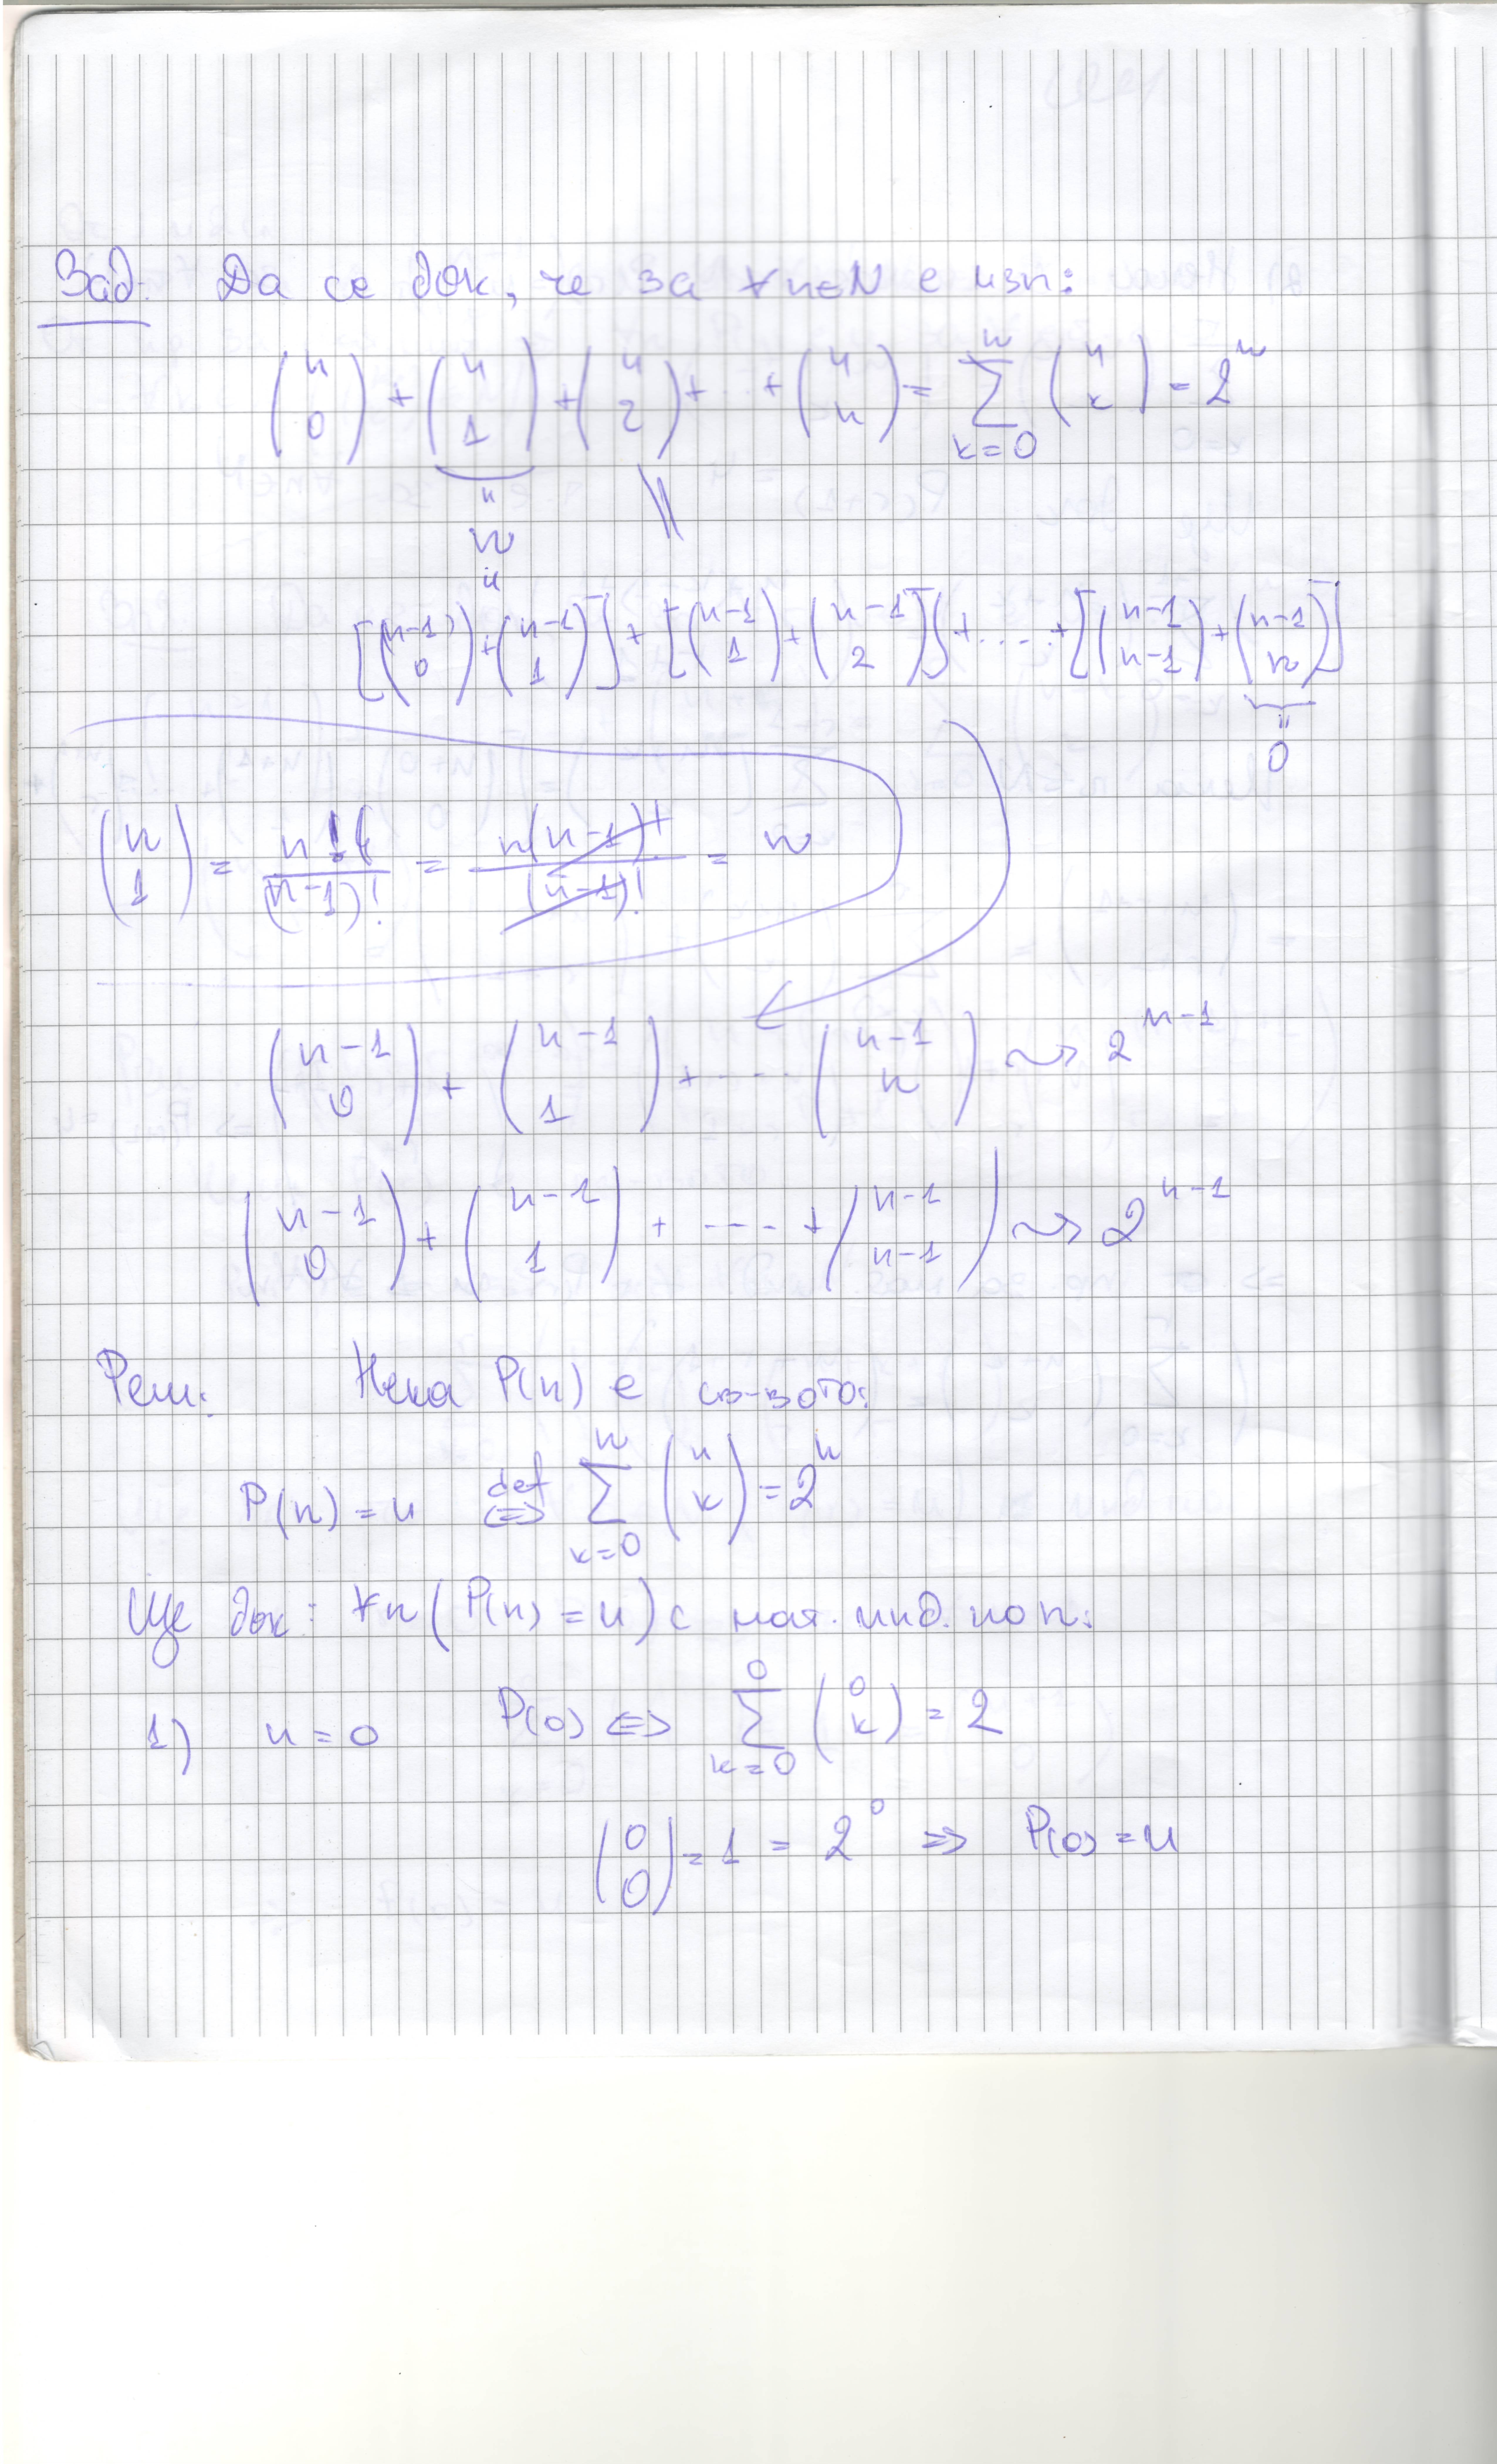 Зад. Да се док, че за ∀n∈N е изп:
(n 0) + (n 1) + (n 2) + ... + (n n) = ∑_{k=0}^{n} (n k) = 2^n
" n "
\\
[(n-1 0) + (n-1 1)] + [(n-1 1) + (n-1 2)] + .... + [(n-1 n-1) + (n-1 n)]
" 0
(n 1) = n!/(n-1)! = n(n-1)!/(n-1)! = n
(n-1 0) + (n-1 1) + .... (n-1 n) ⇝ 2^{n-1}
(n-1 0) + (n-1 1) + .... + (n-1 n-1) ⇝ 2^{n-1}
Реш: Нека P(n) е св-вото:
P(n) = и ⇔^{def} ∑_{k=0}^{n} (n k) = 2^n
Ще док: ∀n(P(n) = и) с мат. инд. по n:
1) n = 0 P(0) ⇔ ∑_{k=0}^{0} (0 k) = 2
(0 0) = 1 = 2^0 ⇒ P(0) = и